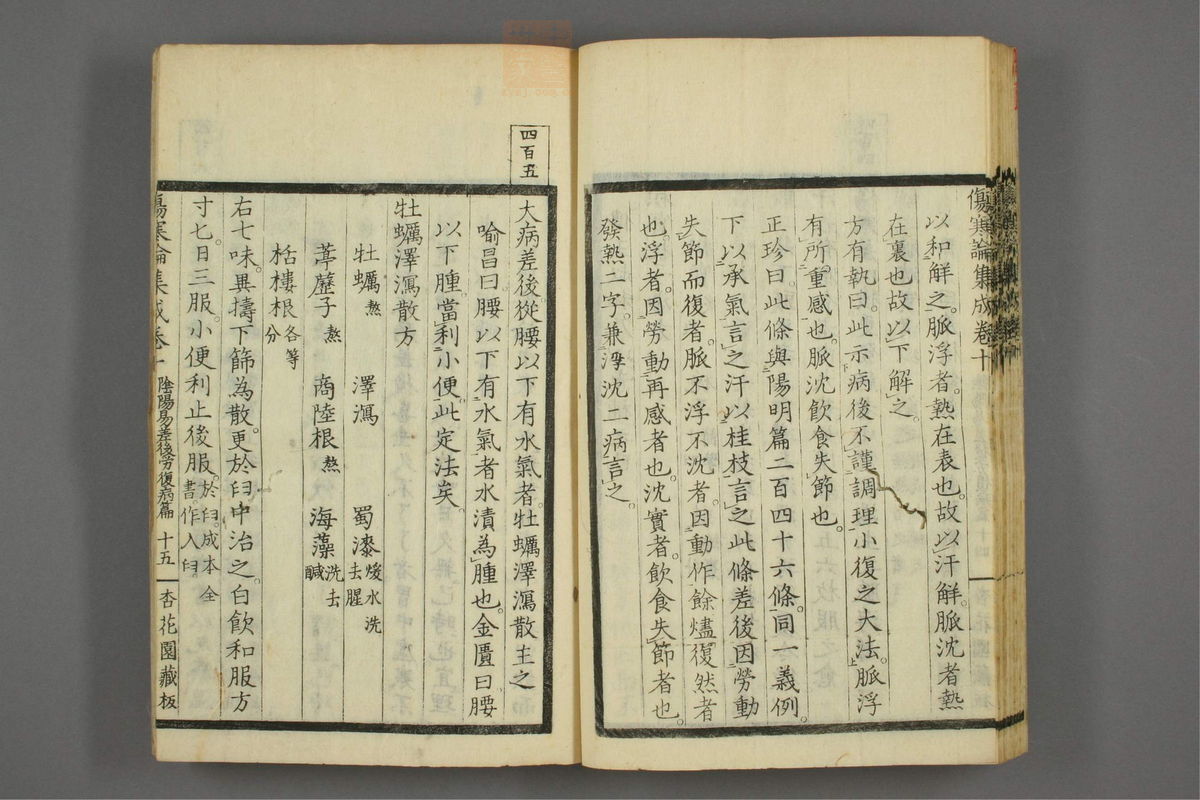 傷寒論集成卷十
以和解之。脈浮者。熱在表也。故以汗解。脈沈者熱
在裏也。故以下解之。
方有執曰。此示病後不謹調理小復之大法。脈浮
有所重感也。脈沈飲食失節也。
正珍曰。此條與陽明篇二百四十六條。同一義例。
下以承氣言之。汗以桂枝言之。此條差後因勞動
失節而復者。脈不浮不沈者。因動作餘燼復然者
也。浮者。因勞動再感者也。沈實者。飲食失節者也。
發熱二字。兼浮沈二病言之。
四百五
大病差後從腰以下有水氣者。牡蠣澤瀉散主之
喻昌曰。腰以下有水氣者水漬為腫也。金匱曰腰
以下腫。當利小便。此定法矣。
牡蠣澤瀉散方
牡蠣熬 澤瀉 蜀漆煖水洗去腥
葶藶子熬 商陸根熬 海藻洗去鹹
栝樓根各等分
右七味。異擣下篩為散。更於臼中治之。白飲和服方
寸七。日三服。小便利止後服。於臼。成本全書。作入臼。
傷寒論集成卷十 陰陽易差後勞復病篇 十五 杏花園藏板